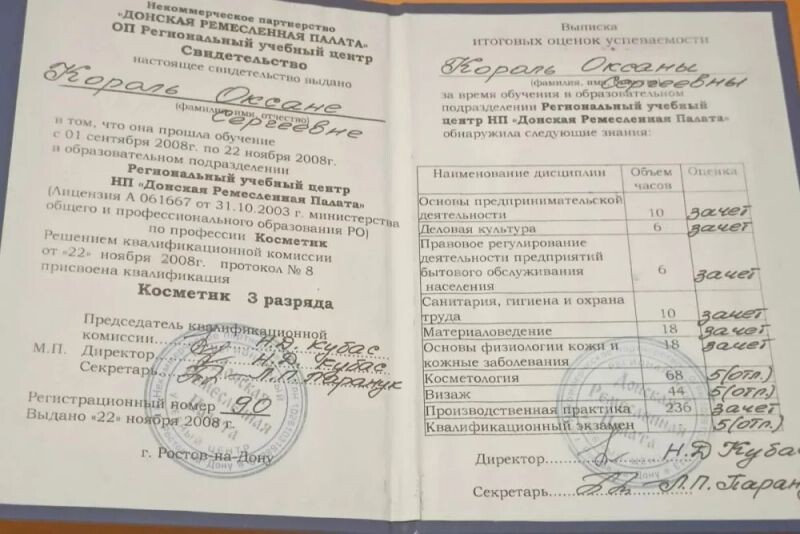 Некоммерческое партнерство
«ДОНСКАЯ РЕМЕСЛЕННАЯ ПАЛАТА»
ОП Региональный учебный центр
Свидетельство
настоящее свидетельство выдано
Король Оксане
(фамилия, имя, отчество)
Сергеевне
в том, что она прошла обучение
с 01 сентября 2008г. по 22 ноября 2008г.
в образовательном подразделении
Региональный учебный центр
НП «Донская Ремесленная Палата»
(Лицензия А 061667 от 31.10.2003 г. министерства
общего и профессионального образования РО)
по профессии Косметик
Решением квалификационной комиссии
от «22» ноября 2008г. протокол № 8
присвоена квалификация
Косметик 3 разряда
Председатель квалификационной
комиссии Н.Д. Кубас
М.П. Директор Н.Д. Кубас
Секретарь Л.П. Паранук
Регистрационный номер 90
Выдано «22» ноября 2008 г.
г. Ростов-на-Дону
Выписка
итоговых оценок успеваемости
Король Оксаны
(фамилия, имя
Сергеевны
за время обучения в образовательном
подразделении Региональный учебный
центр НП «Донская Ремесленная Палата»
обнаружила следующие знания:
Наименование дисциплин Объем часов Оценка
Основы предпринимательской
деятельности 10 зачет
Деловая культура 6 зачет
Правовое регулирование
деятельности предприятий
бытового обслуживания 6 зачет
населения
Санитария, гигиена и охрана
труда 10 зачет
Материаловедение 18 зачет
Основы физиологии кожи и 18 зачет
кожные заболевания
Косметология 68 5(отл.)
Визаж 44 5(отл.)
Производственная практика 236 зачет
Квалификационный экзамен 5(отл.)
Директор Н.Д Кубас
Секретарь Л.П. Паран
Донская
Ремесленная
Палата